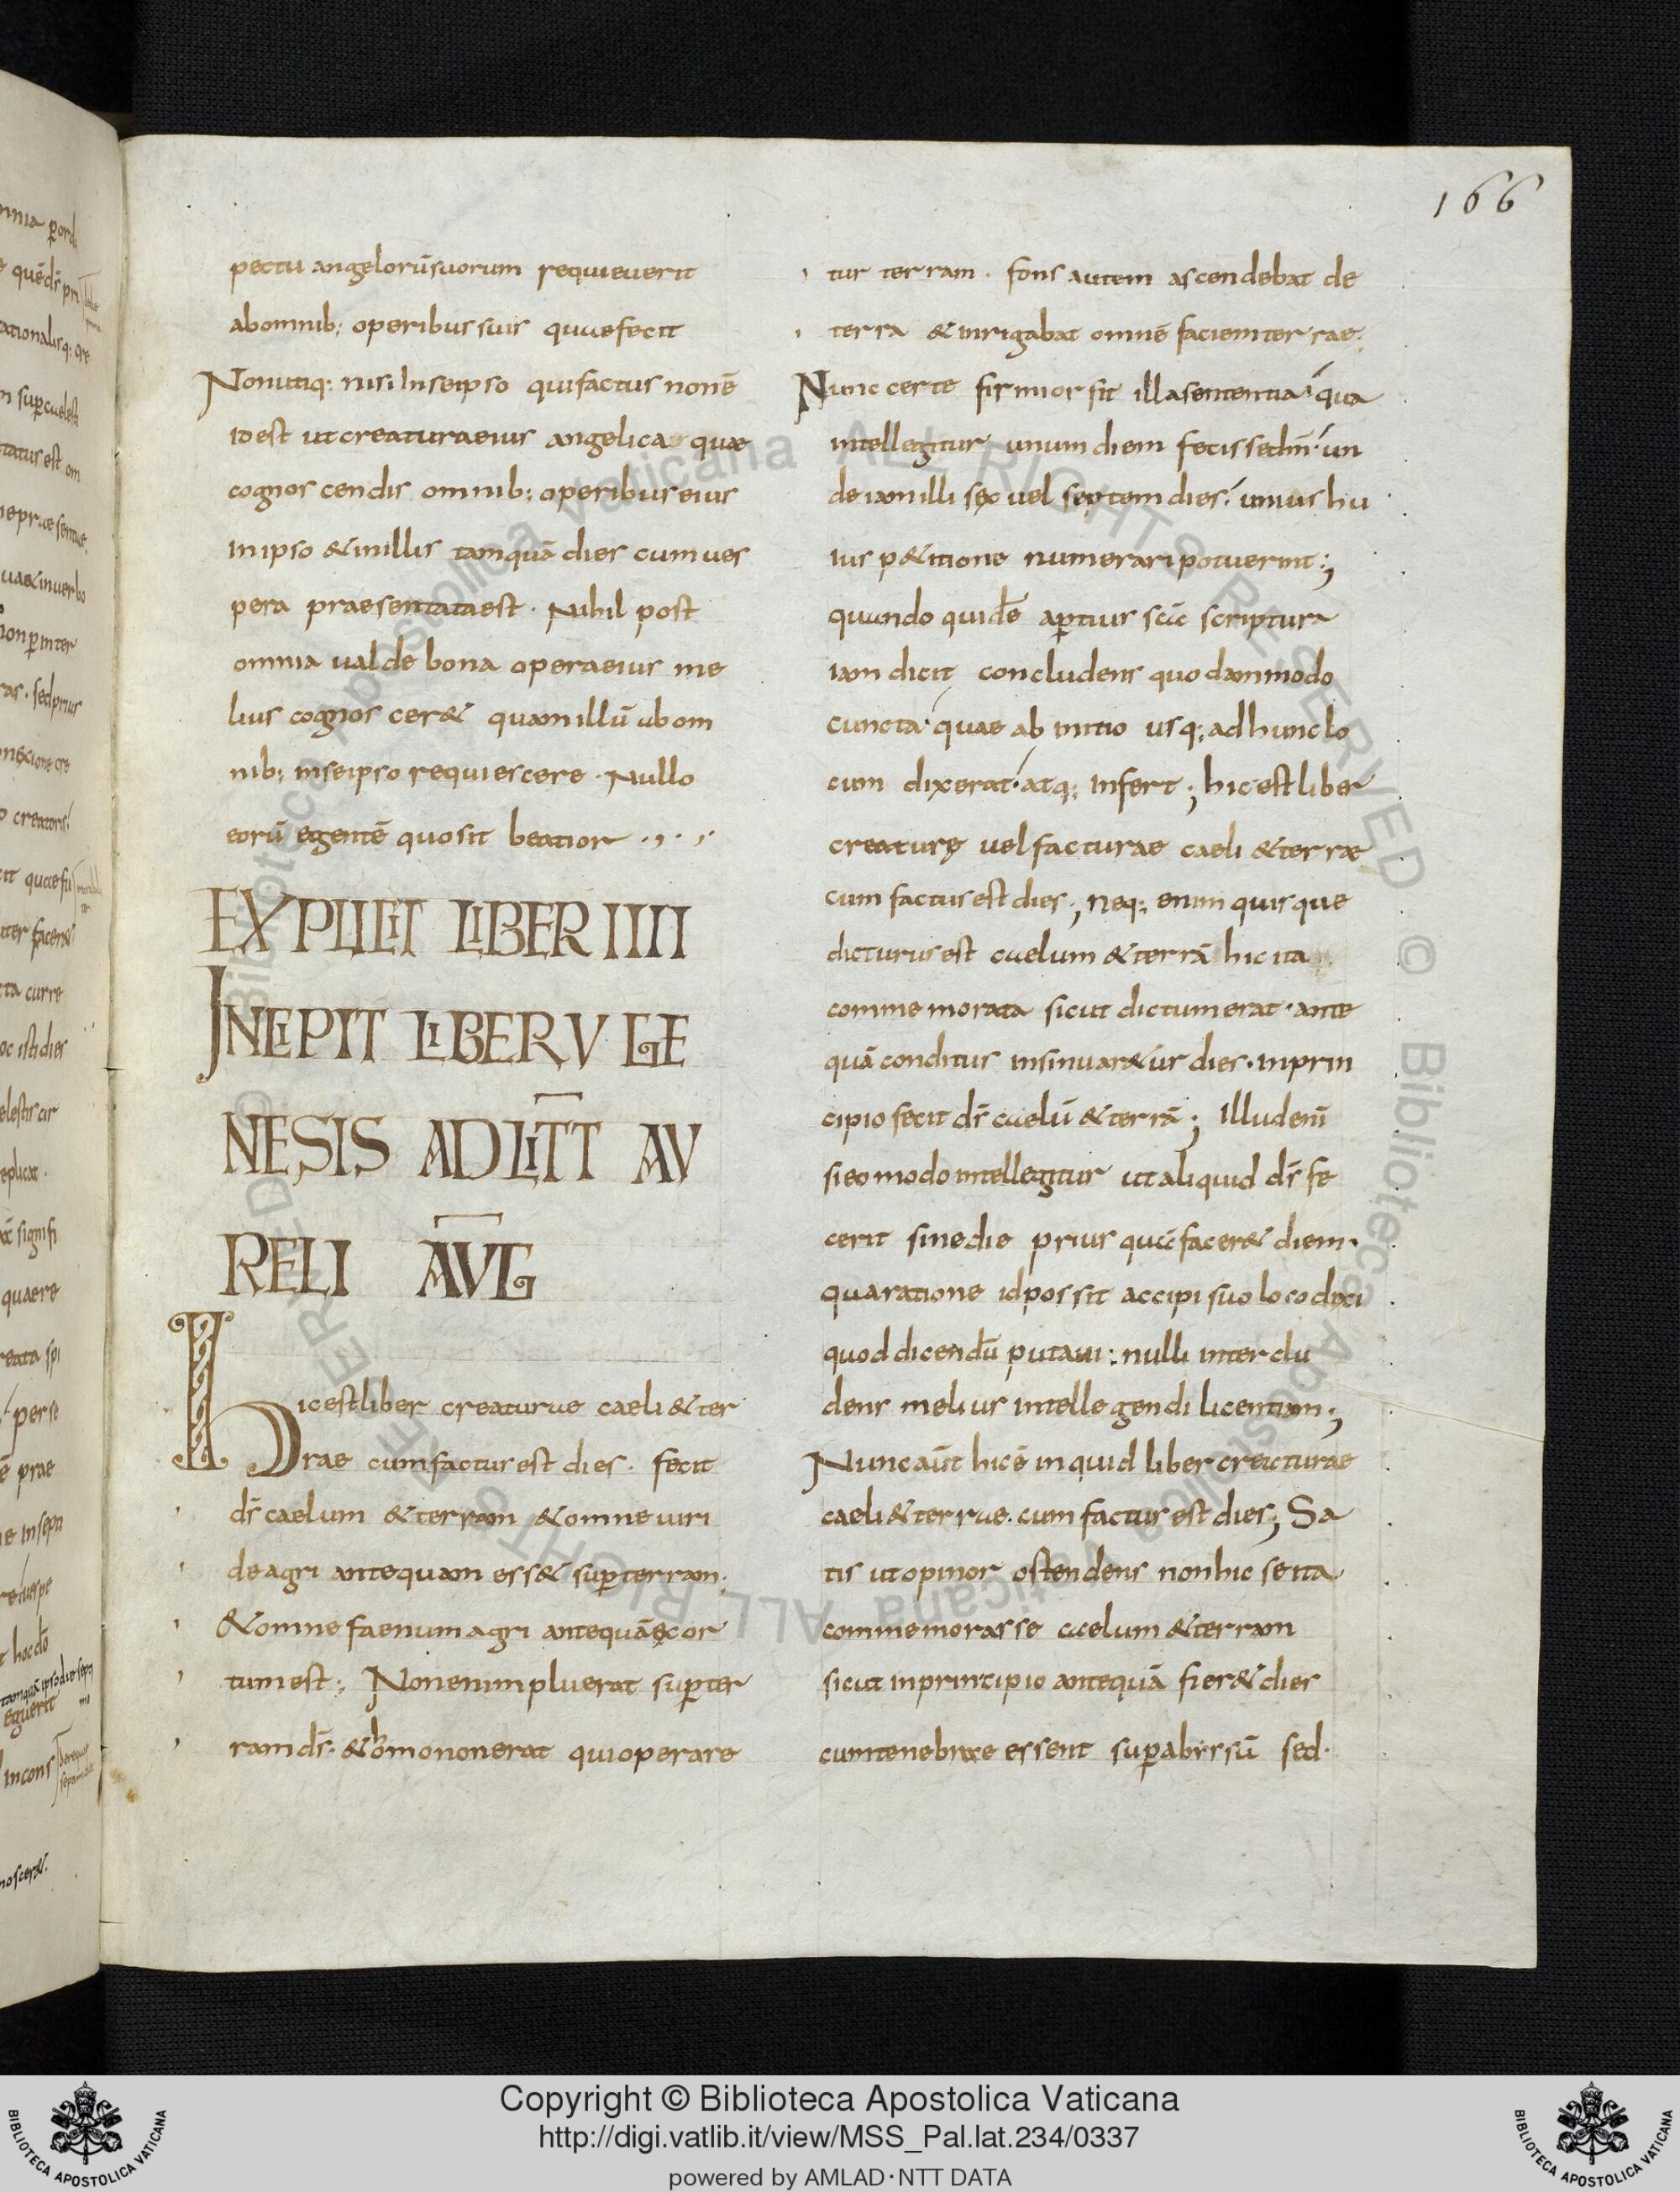 166
pectu angelorūsuorum requieuerit
abomnib; operibus suis quaefecit
Nonutiq: nisi Inseipso quifactus nonē
idest utcreaturaeius angelica quae
cognoscendis omnib; operibus eius
inipso &inillis tamquā dies cumues
pera praesentataest. Nihil post
omnia ualde bona operaeius me
lius cognoscer& quamillū abom
nib; inseipso requiescere. Nullo
eorū egentē quosit beatior
EXPLICIT LIBER IIII
INCIPIT LIBER V GE
NESIS AD LITT̅ AU
RELI AUG̅
Hicestliber creaturae caeli &ter
rae cumfactus est dies. fecit
ds̄ caelum &terram &omne uiri
de agri antequam ess& sup̄terram.
&omne faenum agri antequāęxor
tumest; Nonenim pluerat sup̄ter
ram ds̄. &homononerat quioperare
tur terram. fons autem ascendebat de
terra &inrigabat omnē faciemterrae;
Nunc certe firmior fit illasententia qua
intellegitur unum diem fecissedm̄ un
deiamilli sex uel septem dies unius hu
ius p&itione numerari potuerint;
quando quidē ap̄tius scā scriptura
iam dicit concludens quodammodo
cuncta quae ab initio usq; adhunclo
cum dixerat atq; infert; hicestliber
creaturę uel facturae caeli &terrae
cum factus est dies; Neq; enim quisque
dicturus est caelum &terrā hic ita
commemorata sicut dictumerat ante
quā conditus insinuar&ur dies. inprin
cipio fecit ds̄ caelū &terrā; Illudenī
sieomodo intellegitur ut aliquid ds̄ fe
cerit sinedie prius quā facer& diem.
quaratione idpossit accipi suo loco dixi
quod dicendū putaui; nulli inter clu
dens melius intellegendi licentiam;
Nunc aūt hicē inquid liber creaturae
caeli &terrae. cum factus est dies; Sa
tis utopinor ostendens nonhic seita
commemorasse caelum &terram
sicut inprincipio antequā fier& dies
cumtenebrae essent sup̄abyssū sed
Copyright © Biblioteca Apostolica Vaticana
http://digi.vatlib.it/view/MSS_Pal.lat.234/0337
powered by AMLAD·NTT DATA
BIBLIOTECA APOSTOLICA VATICANA
BIBLIOTECA APOSTOLICA VATICANA
© Biblioteca Apostolica Vaticana ALL RIGHTS RESERVED © Biblioteca Apostolica Vaticana ALL RIGHTS RESERVED